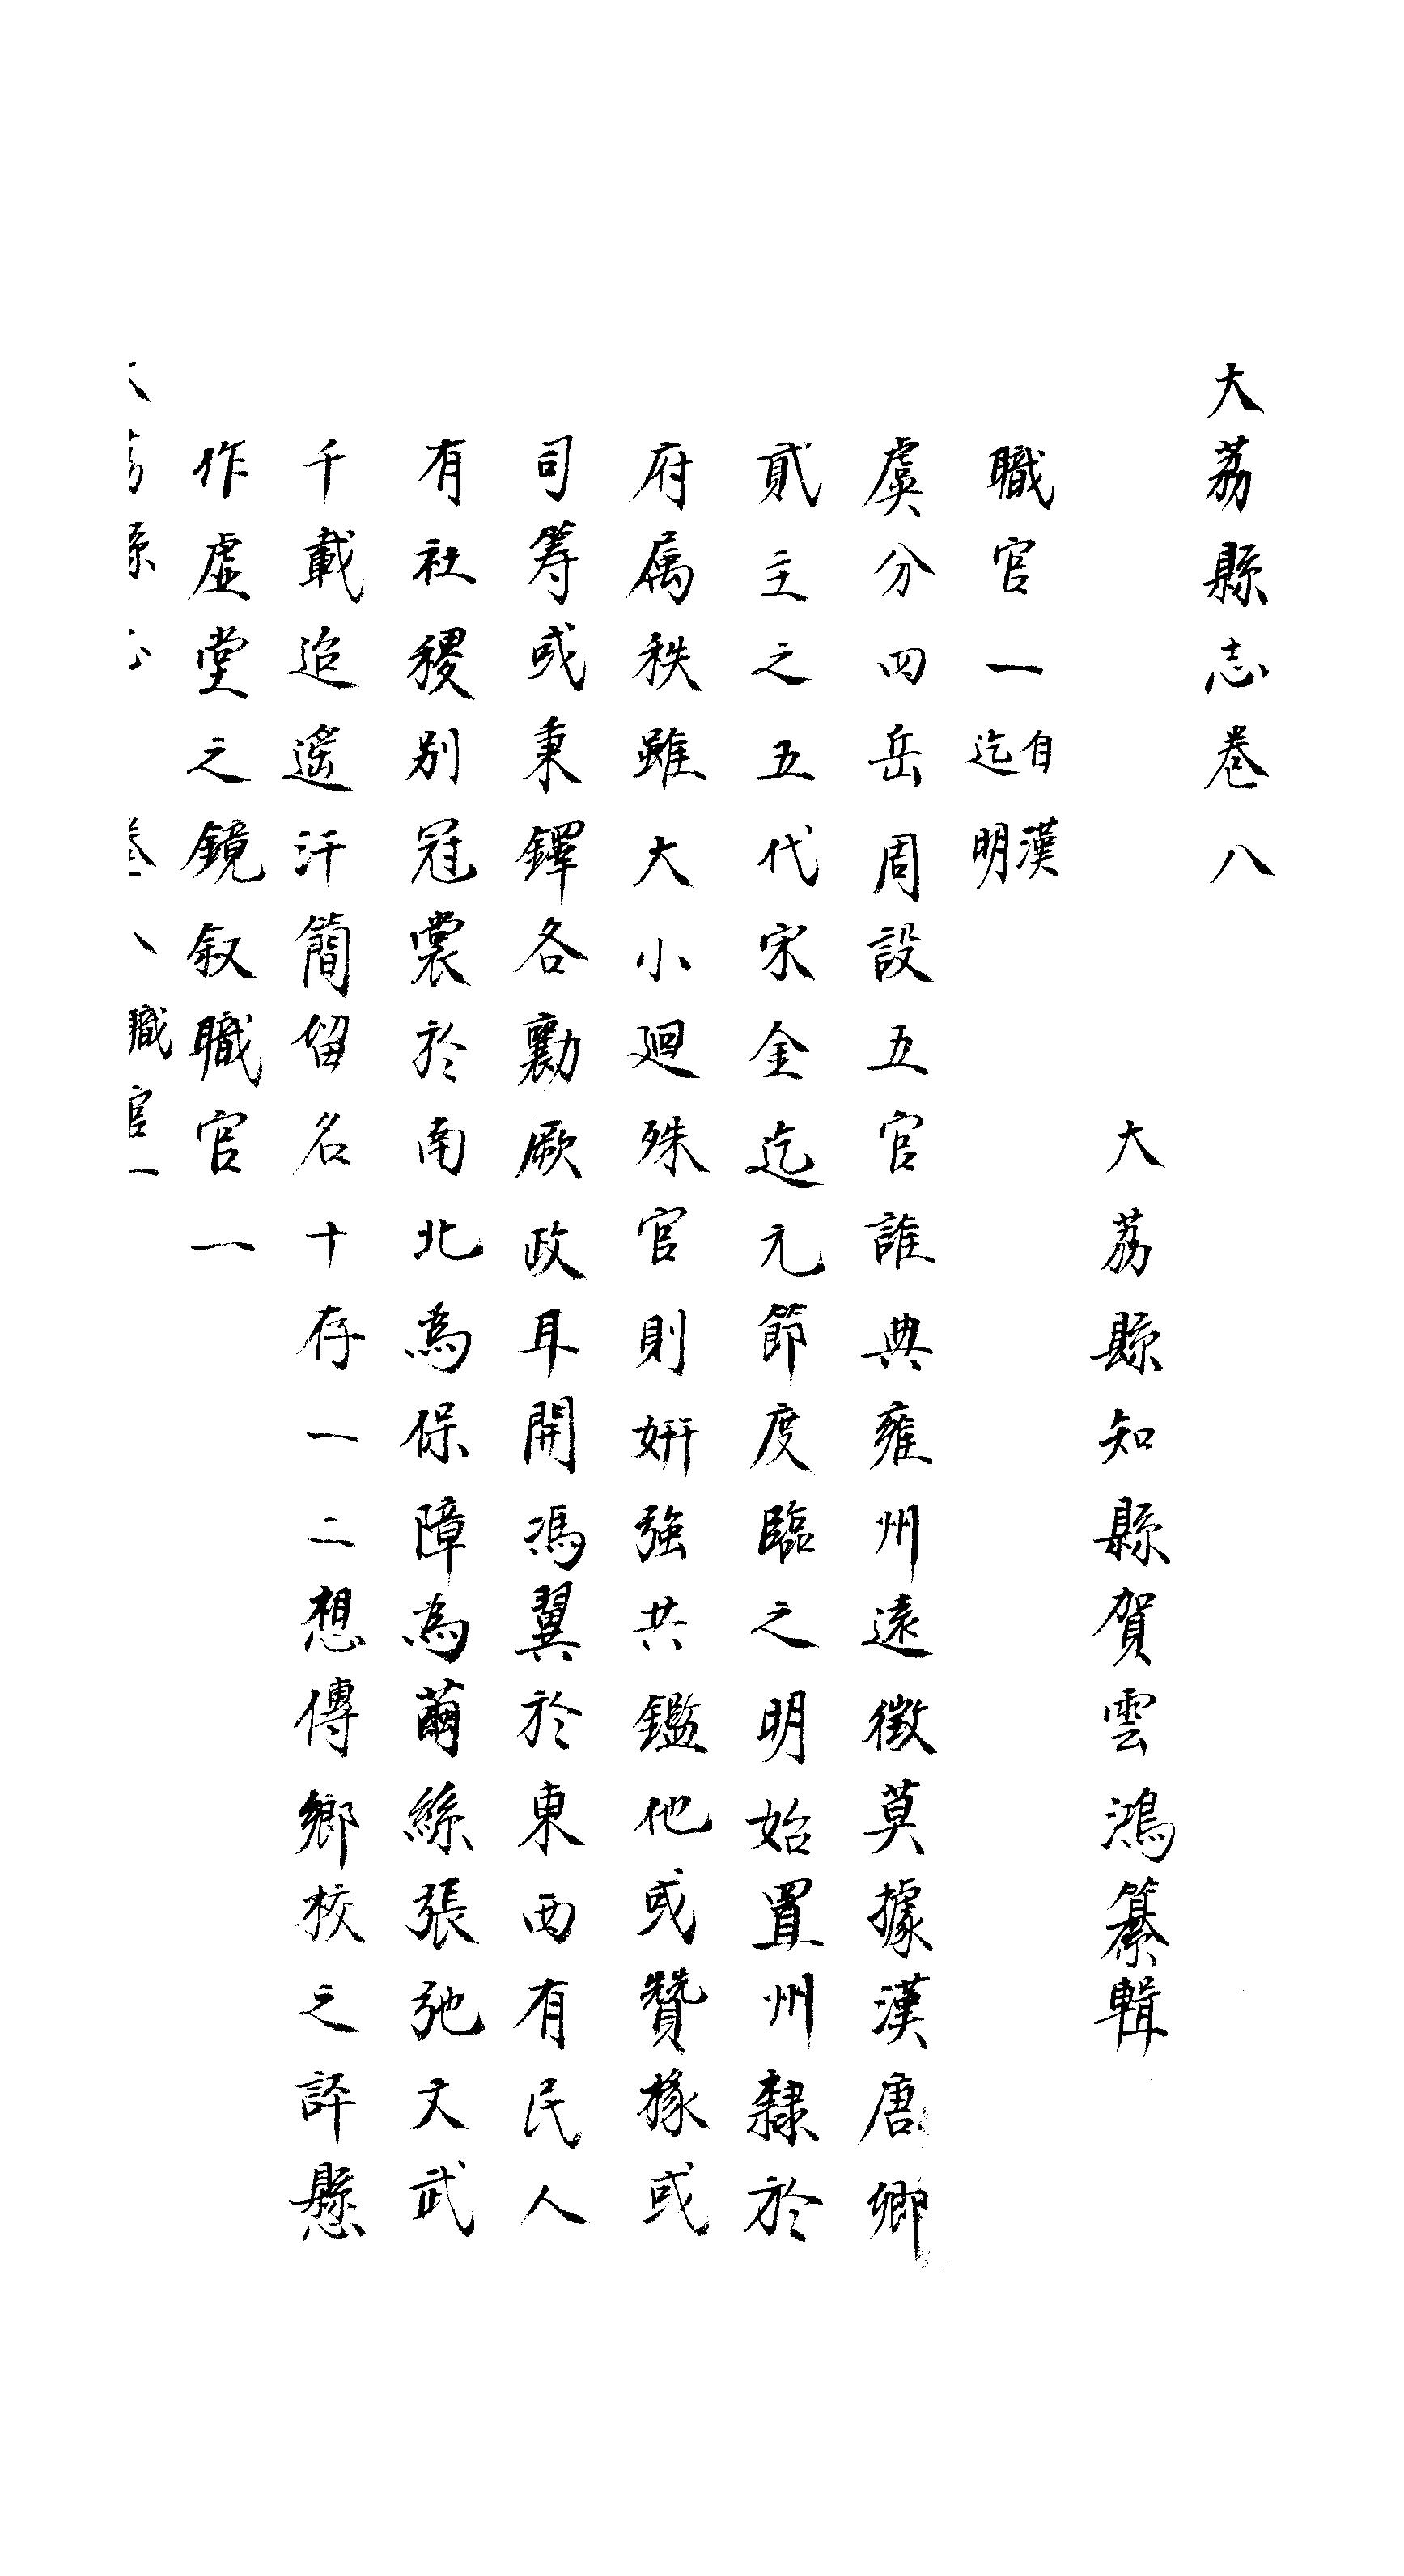 大荔縣志卷八
大荔縣知縣賀雲鴻纂輯
職官一自漢迄明
虞分四岳周設五官誰典雍州遠徴莫據漢唐卿
貳主之五代宋金迄元節度臨之明始置州隸於
府属秩雖大小迴殊官則妍强共鑑他或贊掾或
司筹或秉鐸各勷厥政耳開馮翼於東西有民人
有社稷别冠裳於南北為保障為繭絲張弛文武
千載迨遙汗簡留名十存一二想傳鄉校之評懸
作虛堂之鏡叙職官一
大荔縣志 卷八職官一